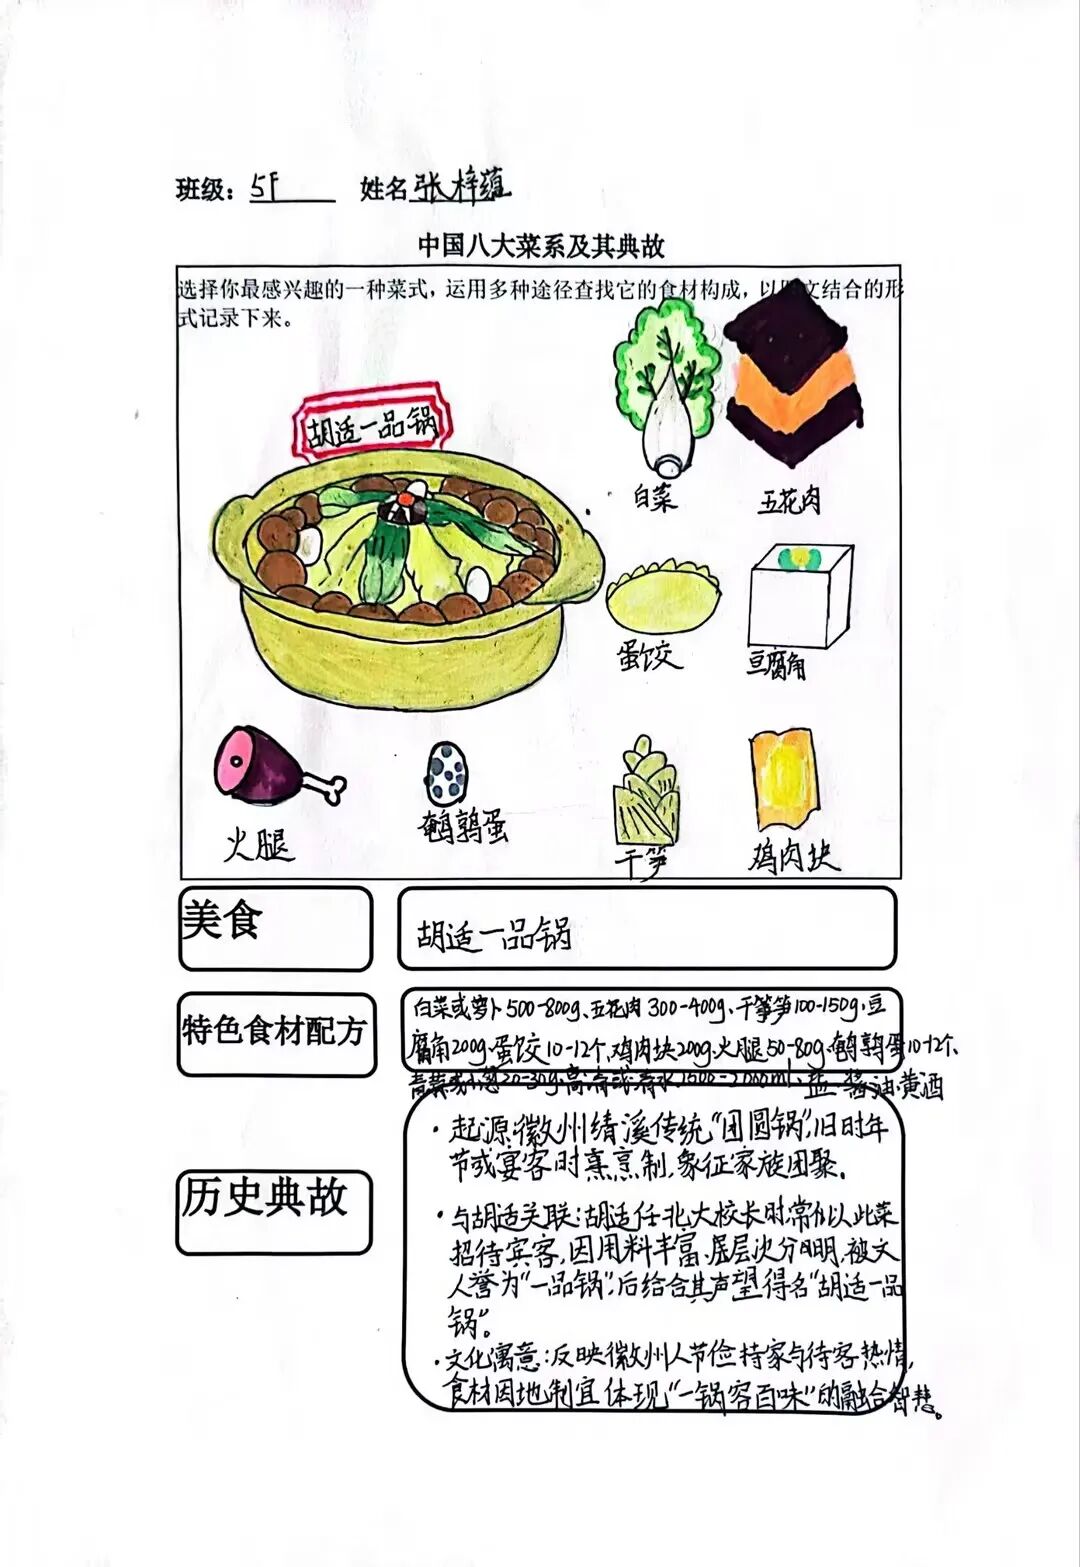 班级：5F 姓名张梓蕴
中国八大菜系及其典故
选择你最感兴趣的一种菜式，运用多种途径查找它的食材构成，以图文结合的形
式记录下来。
胡适一品锅
白菜
五花肉
蛋饺
豆腐角
火腿
鹌鹑蛋
干笋
鸡肉块
美食
胡适一品锅
特色食材配方
白菜或萝卜500-800g、五花肉300-400g、干笋100-150g、豆
腐角200g、蛋饺10-12个、鸡肉块200g、火腿50-80g、鹌鹑蛋10-12个、
青菜或小葱20-30g、高汤或清水1500-2000ml、盐、酱油、黄酒
历史典故
·起源：徽州绩溪传统“团圆锅”，旧时年
节或宴客时烹制，象征家族团聚。
·与胡适关联：胡适任北大校长时常以此菜
招待宾客，因用料丰富、层次分明，被文
人誉为“一品锅”，后给合其声望得名“胡适一品
锅”。
·文化寓意：反映徽州人节俭持家与待客热情，
食材因地制宜体现“一锅容百味”的融合智慧。